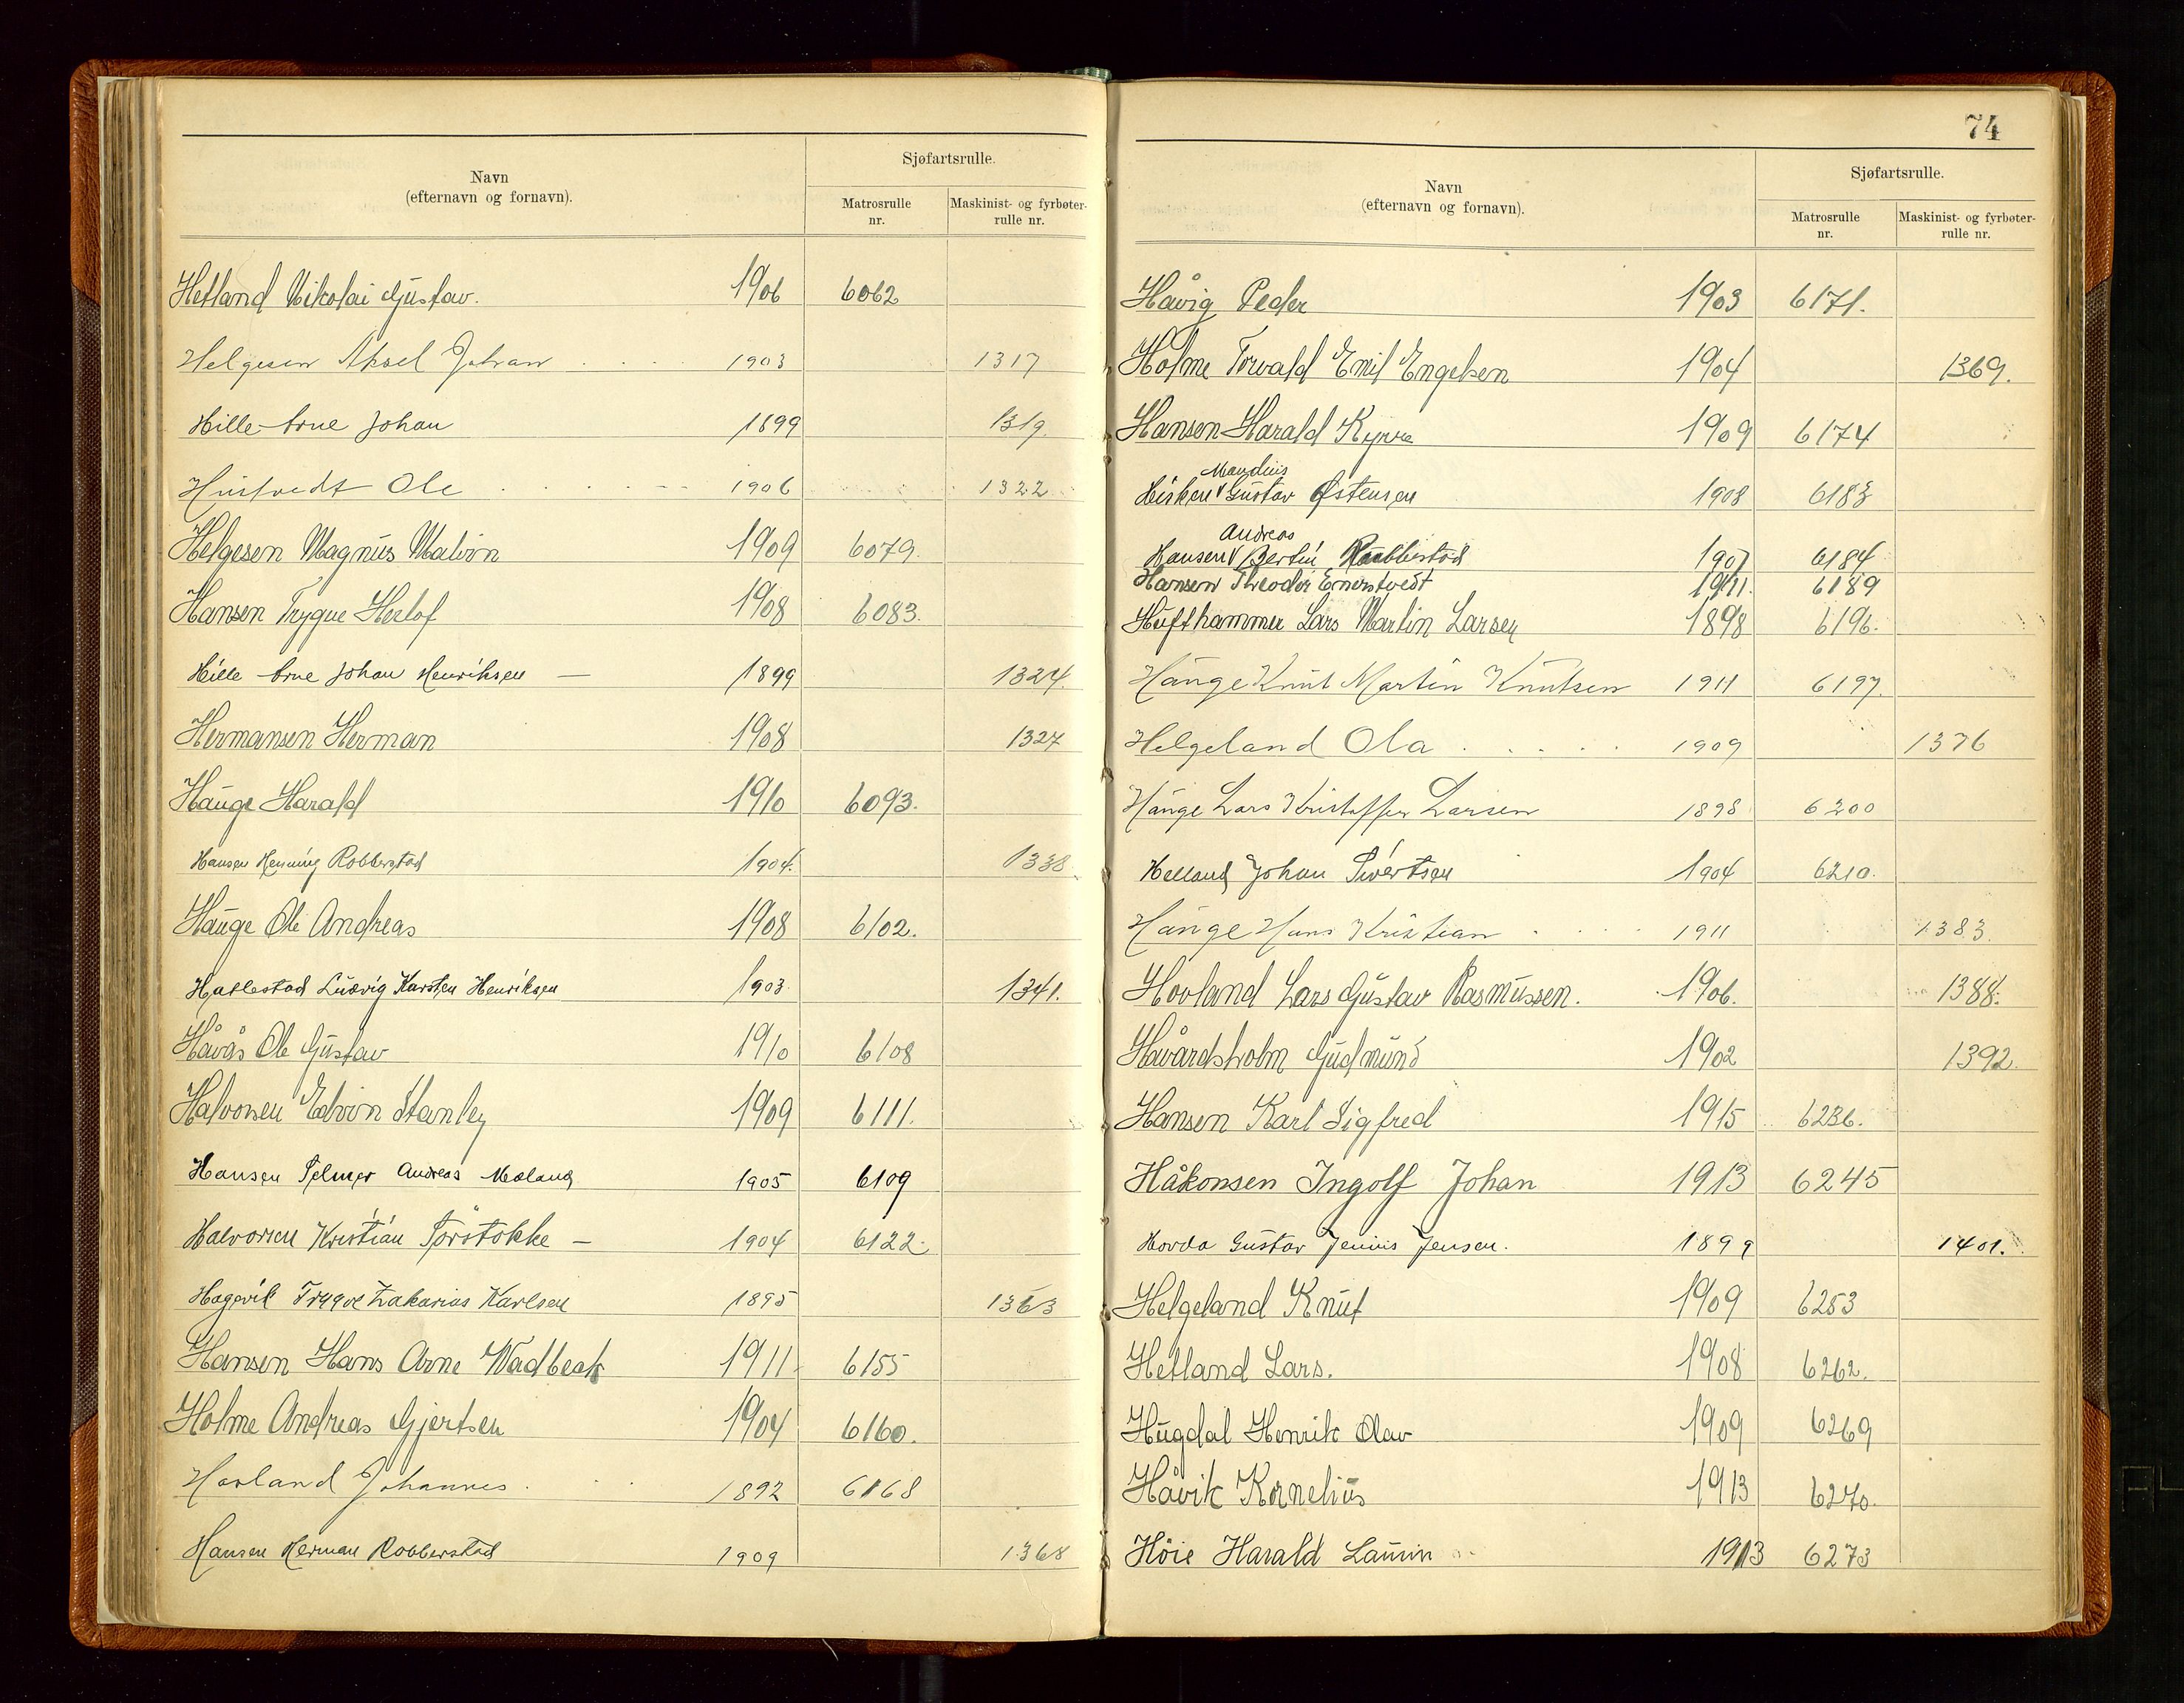 74
Navn
(efternavn og fornavn).
Sjøfartsrulle.
Matrosrulle
nr.
Maskinist- og fyrbøter-
rulle nr.
Hetland Nikolai Gustav. 1906 6062
Helgesen Aksel Johan 1903 1317
Hille Arne Johan 1899 1319.
Hustvedt Ole 1906 1322
Helgesen Magnus Malvin 1909 6079.
Hansen Trygve Herlof 1908 6083.
Hille Arne Johan Henriksen — 1899 1324.
Hermansen Herman 1908 1327
Hauge Harald 1910 6093.
Hansen Henning Robberstad 1904. 1338.
Hauge Ole Andreas 1908 6102.
Hatlestad Ludvig Karsten Henriksen 1903 1341.
Håvås Ole Gustav 1910 6108
Halvorsen Edvin Stanley 1909 6111.
Hansen Andreas 1905 6109
Halvorsen Kristian Torstokke — 1904 6122.
Hagevik Trygve Zakarias Karlsen 1895 1363
Hansen Hans Arne Wadbeck 1911 6155
Holme Andreas Gjertsen 1904 6160.
Havland Johannes. 1892 6168
Hansen Herman Robberstad 1909 1368
Navn
(efternavn og fornavn).
Sjøfartsrulle.
Matrosrulle
nr.
Maskinist- og fyrbøter-
rulle nr.
Håvig Peder 1903 6171.
Holme Torvald Emil Engelsen 1904 1369.
Hansen Harald Kyrre 1909 6174
Mandius
Hisken Gustav Østensen 1908 6183
Andreas
Hansen Bertin Robberstad 1907 6184
Hansen Theodor Enerstvedt 1911. 6189
Hufthammer Lars Martin Larsen 1898 6196.
Hauge Knut Martin Knutsen 1911 6197.
Helgeland Ola 1909 1376
Hauge Lars Kristoffer Larsen 1898 6200
Helland Johan Sivertsen 1904 6210.
Hauge Hans Kristian 1911 1383.
Hovland Lars Gustav Rasmussen. 1906. 1388.
Håvardsholm Gudmund 1902 1392.
Hansen Karl Sigfred 1915 6236.
Håkonsen Ingolf Johan 1913 6245
Hovda Gustav Jenius Jensen. 1899 1401.
Helgeland Knut 1909 6253
Hetland Lars. 1908 6262.
Hugdal Henrik Olav 1909 6269
Håvik Kornelius 1913 6270.
Höie Harald Laurin 1913 6273